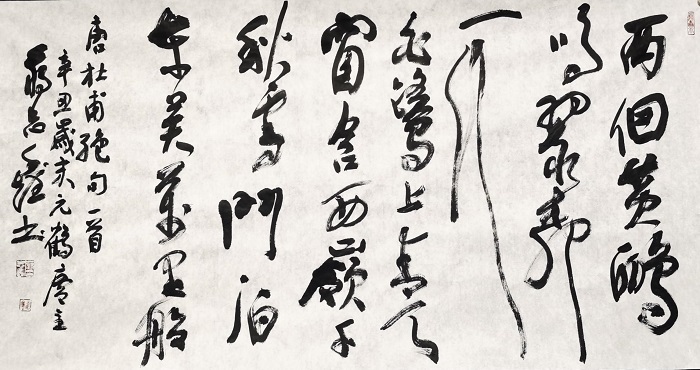 两個黄鸝
鳴翠柳
一行
白鷺上青天
窗含西嶺千
秋雪門泊
東吴萬里船
唐杜甫絶句一首
辛丑歲末元鶴齋主
书